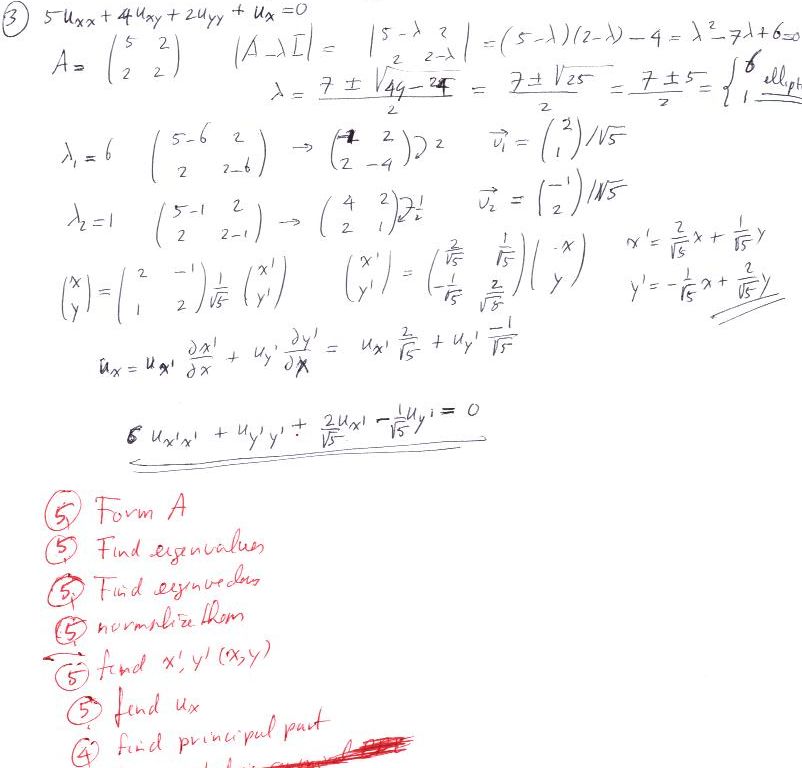 ③ 5u_xx + 4u_xy + 2u_yy + u_x = 0
A = (5 2; 2 2) |A - λI| = |5-λ 2; 2 2-λ| = (5-λ)(2-λ) - 4 = λ² - 7λ + 6 = 0
λ = (7 ± √(49 - 24))/2 = (7 ± √25)/2 = (7 ± 5)/2 = { 6 1 ellipt
λ₁ = 6 (5-6 2; 2 2-6) → (-1 2; 2 -4) 2 v⃗₁ = (2; 1)/√5
λ₂ = 1 (5-1 2; 2 2-1) → (4 2; 2 1) ½ v⃗₂ = (-1; 2)/√5
(x; y) = (2 -1; 1 2) 1/√5 (x'; y') (x'; y') = (2/√5 1/√5; -1/√5 2/√5)(x; y) x' = 2/√5 x + 1/√5 y
y' = -1/√5 x + 2/√5 y
u_x = u_x' ∂x'/∂x + u_y' ∂y'/∂x = u_x' 2/√5 + u_y' -1/√5
6 u_x'x' + u_y'y' + 2/√5 u_x' - 1/√5 u_y' = 0
⑤ Form A
⑤ Find eigenvalues
⑤ Find eigenvectors
⑤ normalize them
⑤ find x', y' (x, y)
⑤ find u_x
④ find principal part